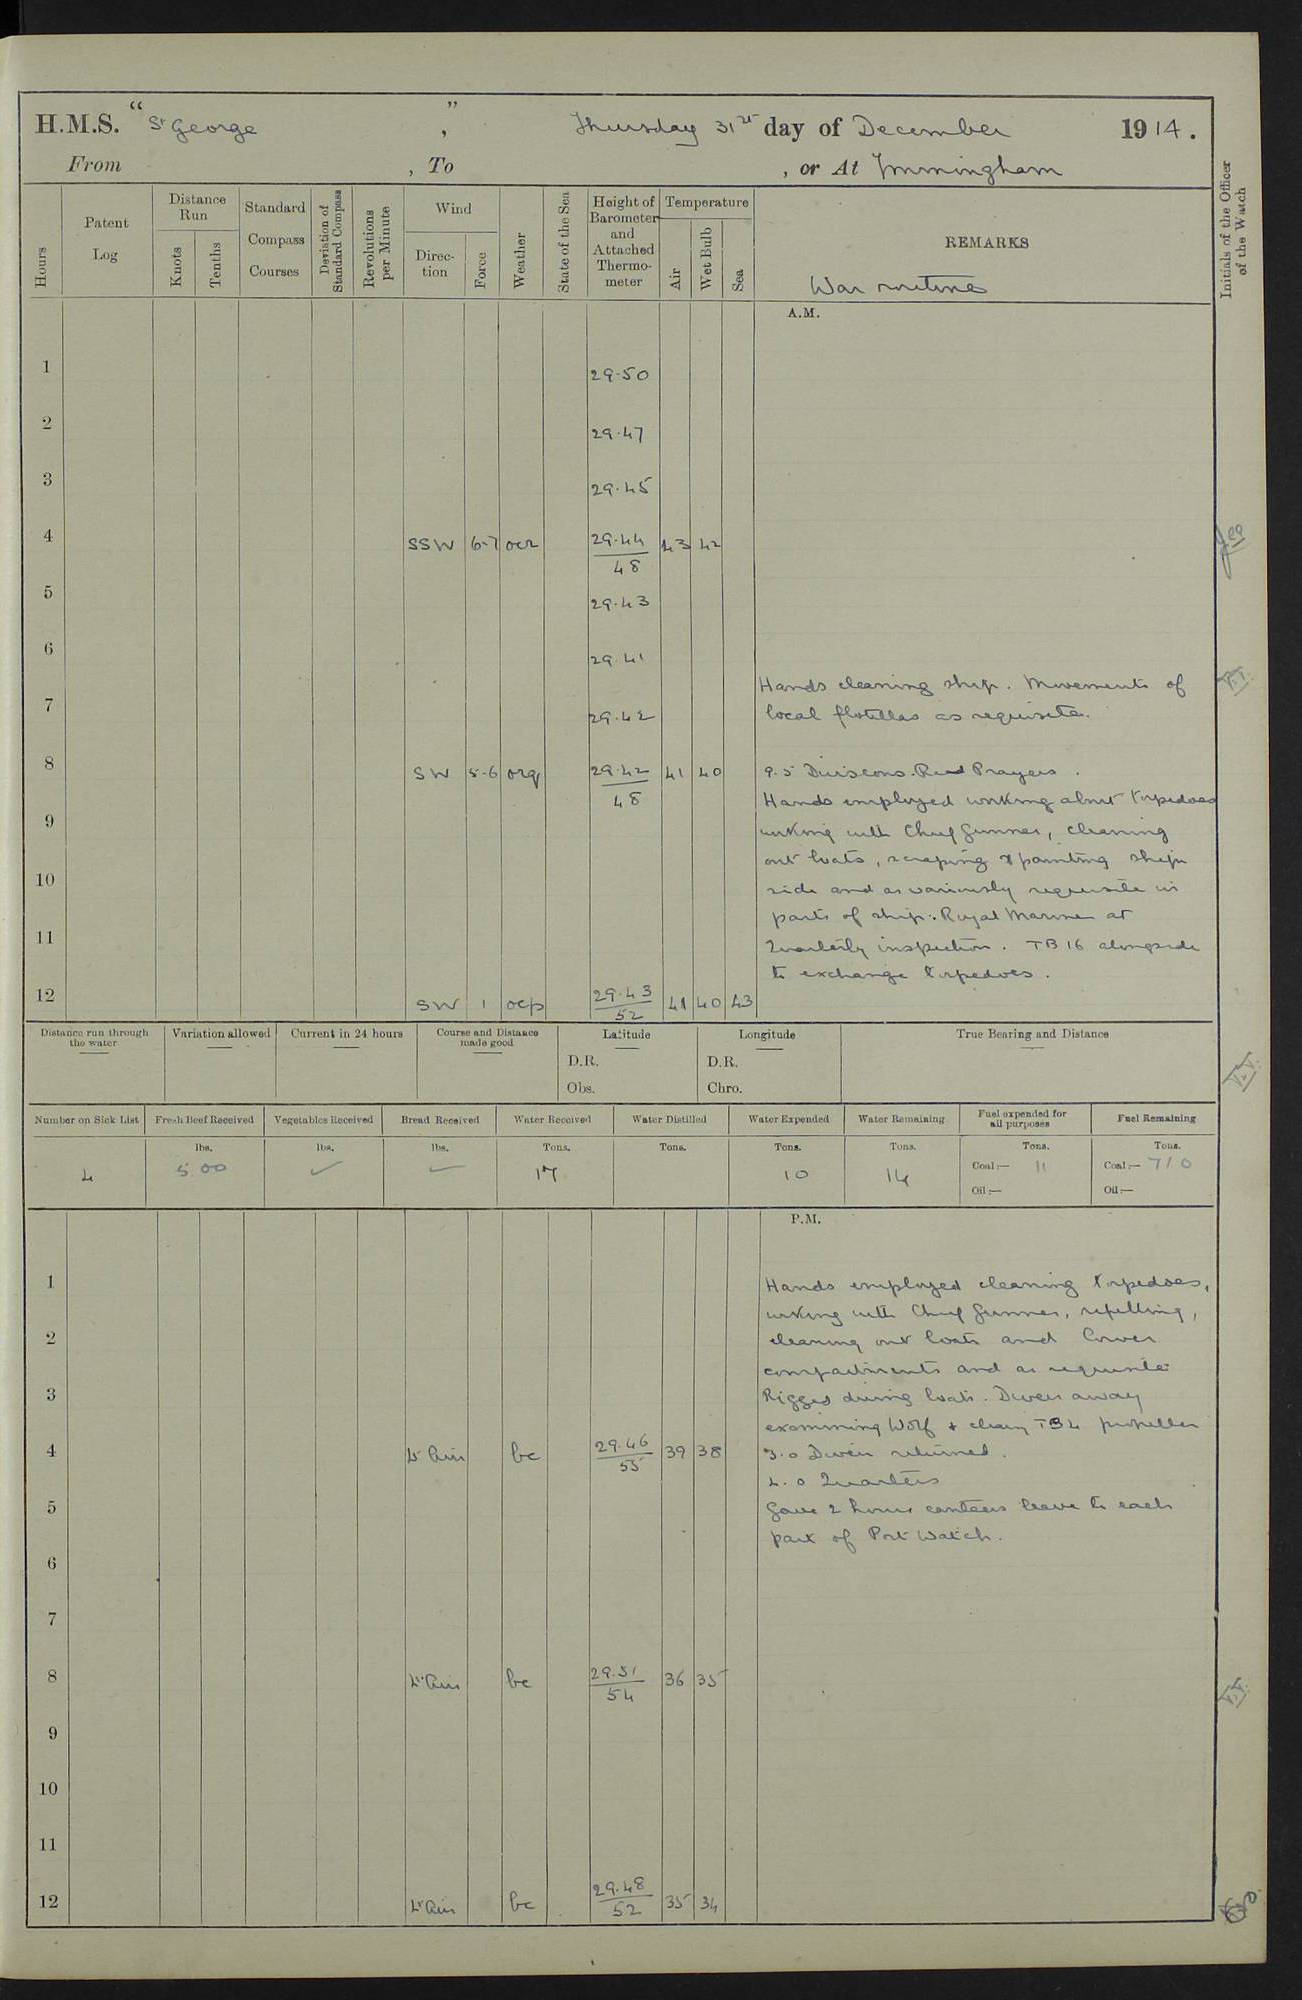 H.M.S. "St George", Thursday 31st day of December 1914.
From , To , or At Immingham
Hours
Patent Log
Distance Run
Knots
Tenths
Standard Compass Courses
Deviation of Standard Compass
Revolutions per Minute
Wind
Direction
Force
Weather
State of the Sea
Height of Barometer and Attached Thermometer
Temperature
Air
Wet Bulb
Sea
REMARKS
War routine
Initials of the Officer of the Watch
A.M.
1 29.50
2 29.47
3 29.45
4 SSW 6-7 ocr 29.44 43 42
48
5 29.43
6 29.41
Hands cleaning ship. Movements of
7 29.42 local flotillas as requisite.
8 SW 5-6 orq 29.42 41 40 9.5 Divisions. Read Prayers.
48 Hands employed working about torpedoes
9 working with Chief Gunner, cleaning
out boats, scraping & painting ships
10 side and as variously requisite in
parts of ship: Royal Marines at
11 Quarterly inspection. TB 16 alongside
to exchange torpedoes.
12 SW 1 ocp 29.43 41 40 43
52
Distance run through the water
Variation allowed
Current in 24 hours
Course and Distance made good
Latitude
D.R.
Obs.
Longitude
D.R.
Chro.
True Bearing and Distance
Number on Sick List
Fresh Beef Received
Vegetables Received
Bread Received
Water Received
Water Distilled
Water Expended
Water Remaining
Fuel expended for all purposes
Fuel Remaining
lbs. lbs. lbs. Tons. Tons. Tons. Tons. Tons. Tons.
4 500 ✓ ✓ 17 10 14 Coal:— 11 Coal:— 710
Oil:— Oil:—
P.M.
1 Hands employed cleaning torpedoes,
working with Chief Gunner, refitting,
2 cleaning out boats and lower
compartments and as requisite
3 Rigged diving boats. Divers away
examining Wolf & clearing TB 4 propeller
4 Lt Airs bc 29.46 39 38 3.0 Divers returned.
55 4.0 Quarters
5 Gave 2 hours canteen leave to each
part of Port Watch.
6
7
8 Lt Airs bc 29.51 36 35
54
9
10
11
12 Lt Airs bc 29.48 35 34
52